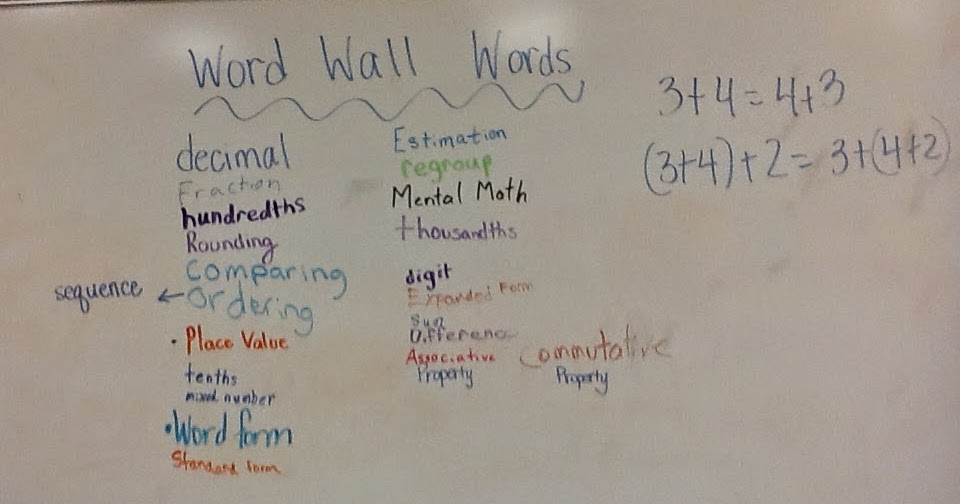 Word Wall Words
decimal
Fraction
hundredths
Rounding
Comparing
sequence ← Ordering
• Place Value
tenths
mixed number
• Word form
Standard form
Estimation
regroup
Mental Math
thousandths
digit
Expanded Form
Sum
Difference
Associative
Property
Commutative
Property
3+4=4+3
(3+4)+2=3+(4+2)